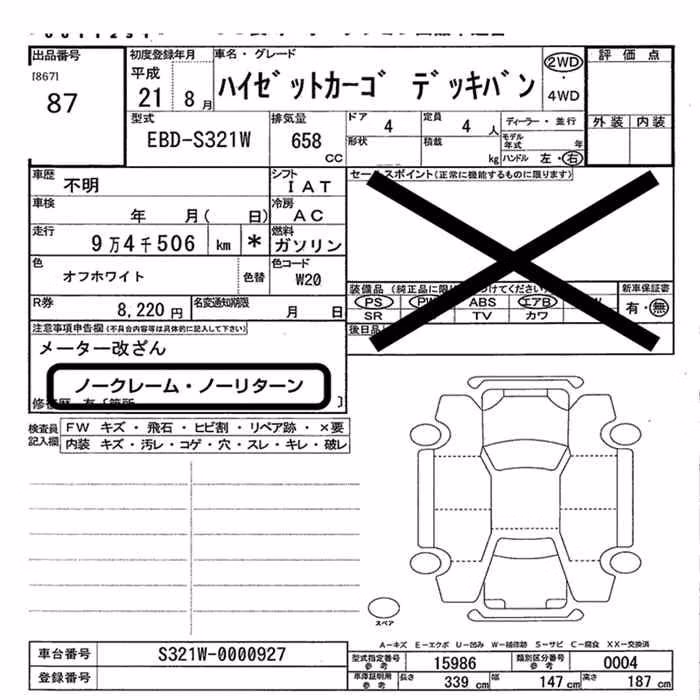 出品番号
[867]
87
初度登録年月
平成
21 8月
車名・グレード
ハイゼットカーゴ デッキバン
2WD
・
4WD
評価点
外装 内装
型式
EBD-S321W
排気量
658
CC
ドア
4
定員
4 人
形状
積載
kg
ディーラー・並行
モデル
年式 年
ハンドル 左・右
車歴
不明
シフト
IAT
車検
年 月( 日)
冷房
AC
走行
9万4千506 km *
燃料
ガソリン
色
オフホワイト
色替
色コード
W20
R券
8,220円
名変通知期限
月 日
セールスポイント(正常に機能するものに限ります)
装備品
PS
ABS エアB
SR TV カワ
新車保証書
有・無
後日品
注意事項申告欄(不具合内容等は具体的に記入して下さい)
メーター改ざん
ノークレーム・ノーリターン
検査員
記入欄
FW キズ・飛石・ヒビ割・リペア跡・×要
内装 キズ・汚レ・コゲ・穴・スレ・キレ・破レ
スペア
A−キズ E−エクボ U−凹み W−補修跡 S−サビ C−腐食 XX−交換済
車台番号
S321W-0000927
登録番号
型式指定番号
参考
15986
類別区分番号
参考
0004
車庫証明用
参考
長さ
339 cm
幅
147 cm
高さ
187 cm